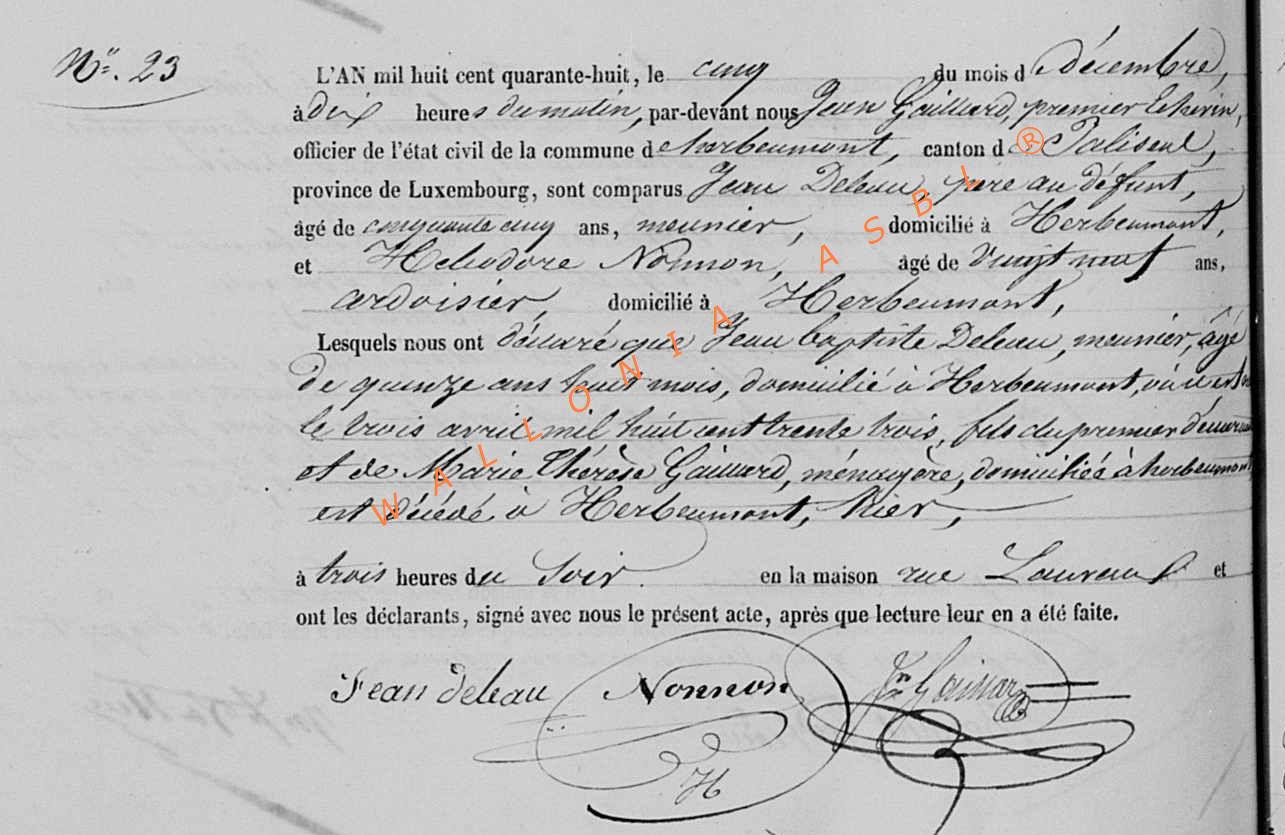 N°. 23
L'AN mil huit cent quarante-huit, le cinq du mois d Décembre,
à dix heures du matin, par-devant nous Jean Gaillard, premier Echevin,
officier de l'état civil de la commune d'herbeumont, canton de Paliseul,
province de Luxembourg, sont comparus Jean Deleau, père au défunt,
âgé de cinquante cinq ans, meunier, domicilié à Herbeumont,
et Heliodore Nonnon, âgé de vingt neuf ans,
ardoisier, domicilié à Herbeumont,
Lesquels nous ont déclaré que Jean baptiste Deleau, meunier, âgé
de quinze ans huit mois, domicilié à Herbeumont, où il est né
le trois avril mil huit cent trente trois, fils du premier déclarant
et de Marie Thérèse Gaillard, ménagère, domiciliée à herbeumont
est décédé à Herbeumont, hier,
à trois heures du soir. en la maison rue et
ont les déclarants, signé avec nous le présent acte, après que lecture leur en a été faite.
Jean deleau Nonnon Jn Gaillard
H
WALLONIA ASBL ®